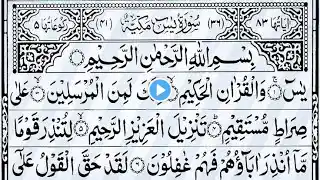 اٰيَاتُهَا ٨٣ (٣٦) سُوْرَةُ يٰسٓ مَكِّيَّةٌ (٤١) رُكُوْعَاتُهَا ٥
بِسْمِ اللّٰهِ الرَّحْمٰنِ الرَّحِيْمِ
يٰسٓ وَالْقُرْاٰنِ الْحَكِيْمِ لَمِنَ الْمُرْسَلِيْنَ عَلٰى
صِرَاطٍ مُّسْتَقِيْمٍ تَنْزِيْلَ الْعَزِيْزِ الرَّحِيْمِ لِتُنْذِرَ قَوْمًا
مَّاۤ اُنْذِرَ اٰبَآؤُهُمْ فَهُمْ غٰفِلُوْنَ لَقَدْ حَقَّ الْقَوْلُ عَلٰٓى